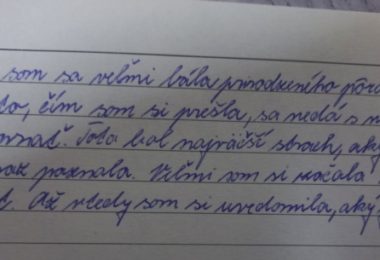 som sa veľmi bála prirodzeného pôro
to, čím som si prešla, sa nedá s n
ovnať. Toto bol najväčší strach, aký
nak poznala. Veľmi som si vážila
ť. Až vtedy som si uvedomila, aký